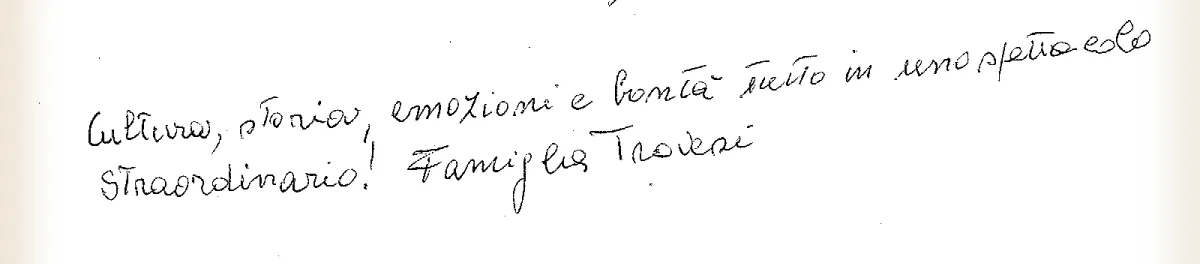 Cultura, storia, emozioni e bontà tutto in uno spettacolo
straordinario! Famiglia Travesi